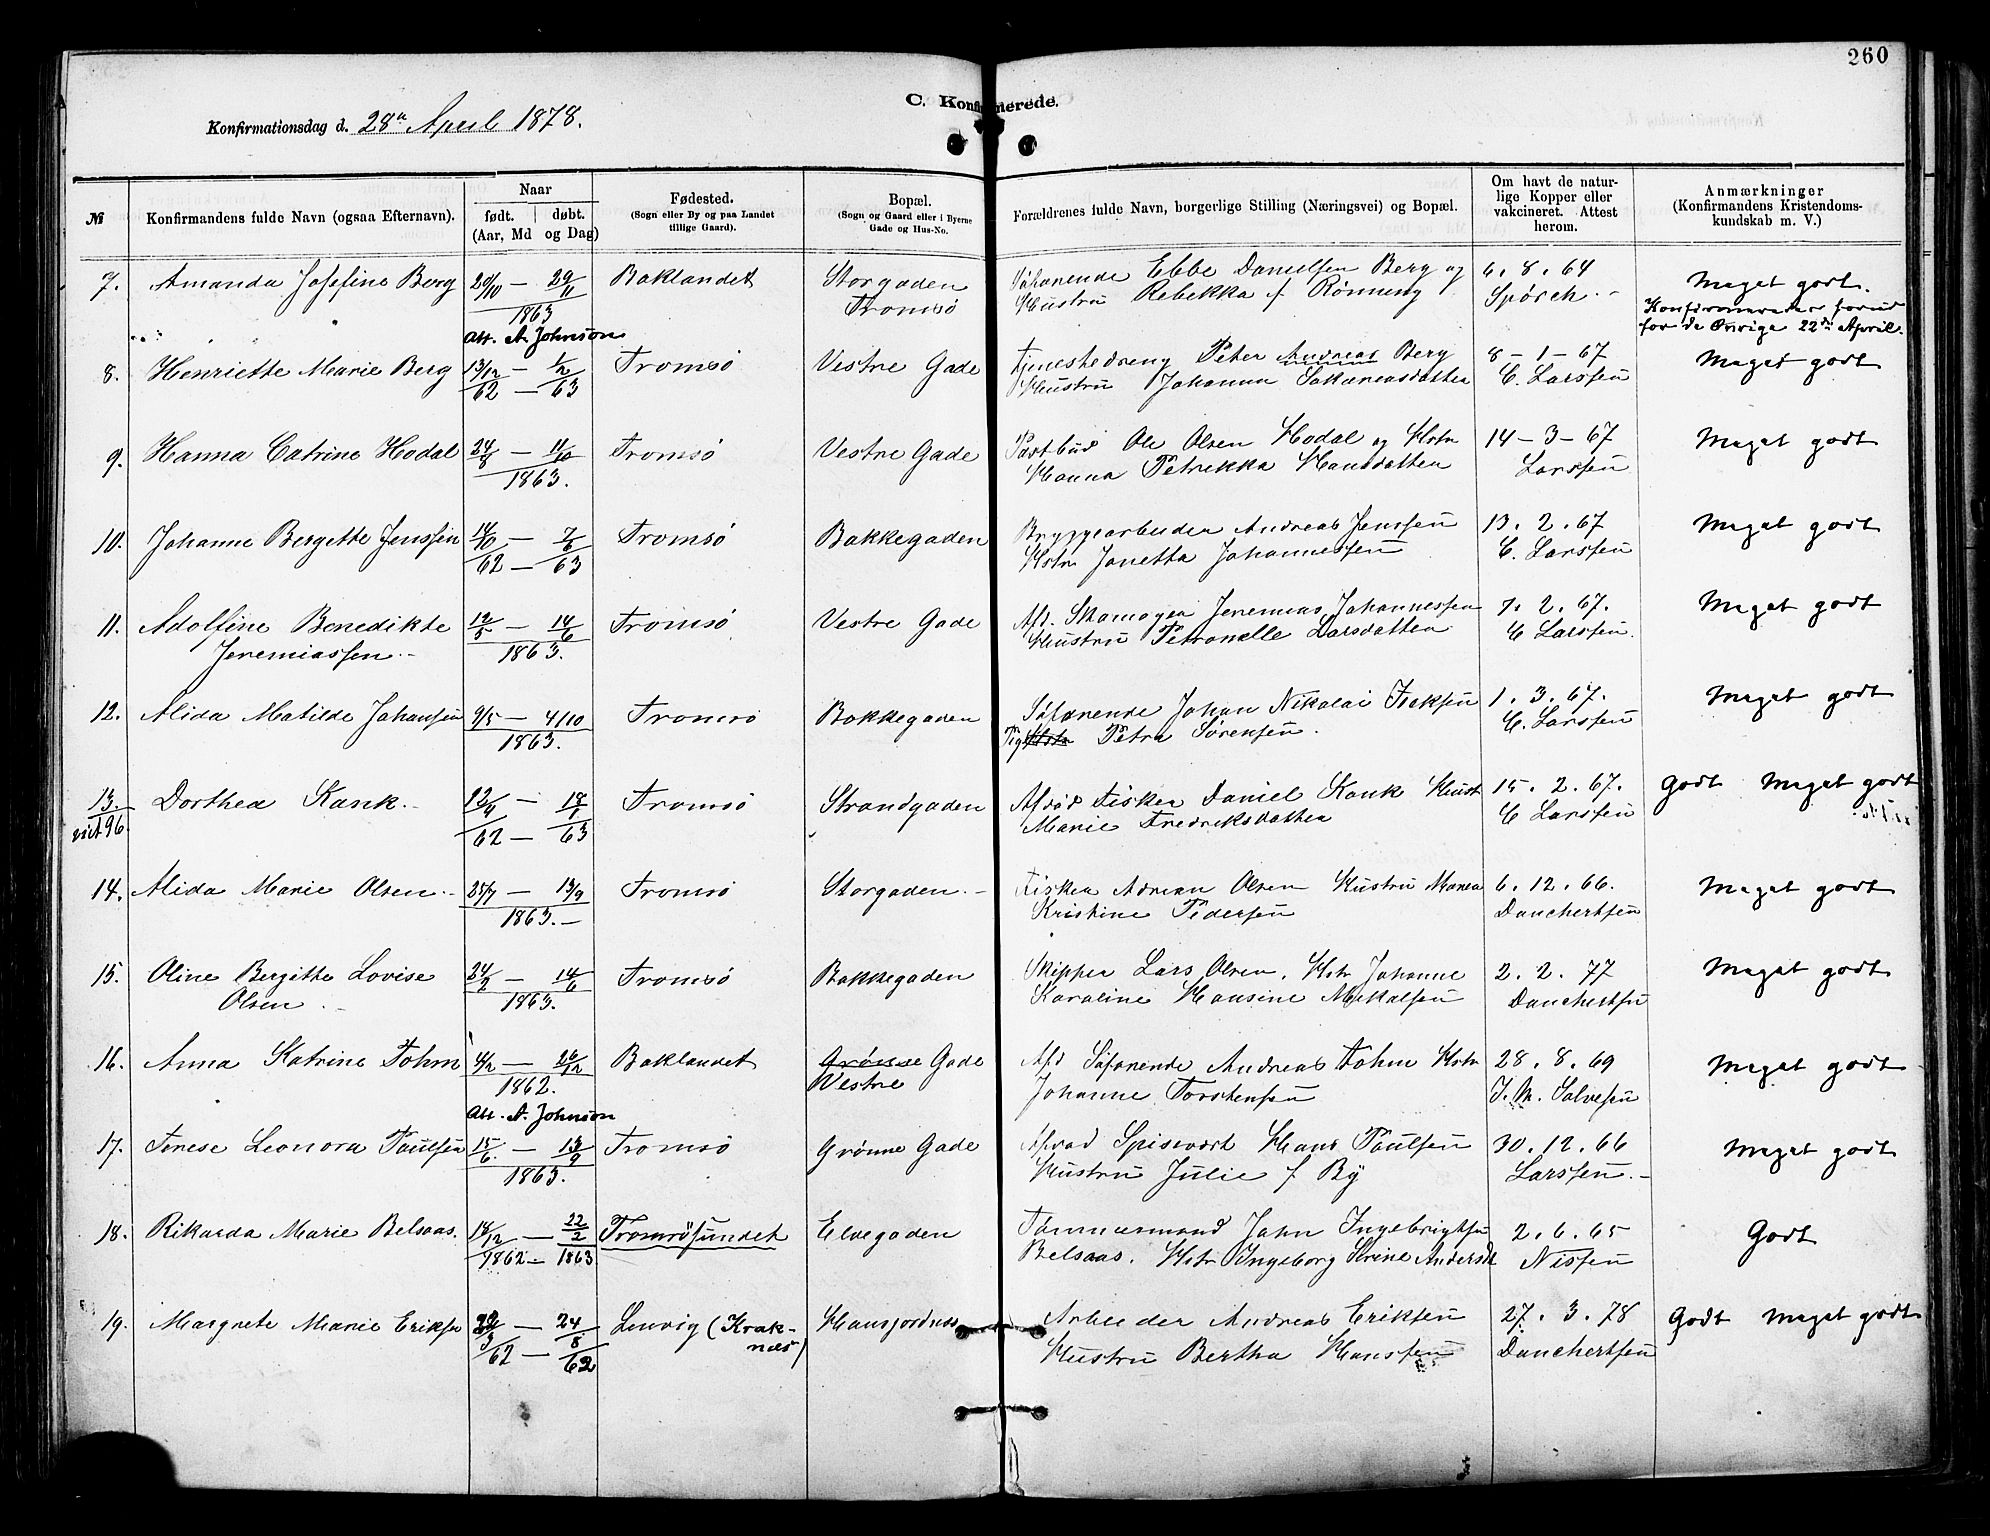 260
C. Konfirmerede.
Konfirmationsdag d. 28de April 1878.
№
Konfirmandens fulde Navn (ogsaa Efternavn).
Naar
født. | døbt.
(Aar, Md og Dag)
Fødested.
(Sogn eller By og paa Landet
tillige Gaard).
Bopæl.
(Sogn og Gaard eller i Byerne
Gade og Hus-No.
Forældrenes fulde Navn, borgerlige Stilling (Næringsvei) og Bopæl.
Om havt de natur-
lige Kopper eller
vakcineret. Attest
herom.
Anmærkninger
(Konfirmandens Kristendoms-
kundskab m. V.)
7. Amanda Josefine Berg 29/10 — 29/11 Baklandet Storgaden Søfarende Ebbe Danielsen Berg og 6. 8. 64 Meget godt.
1863 Tromsø Hustru Rebekka f Rønning Spörck.- Konfirmeredes forud
Att. A. Johnson for de Øvrige 22de April.
8. Henriette Marie Berg 13/12 — 1/2 Tromsø Vestre Gade Tjenestedreng Peter Andreas Berg 8 - 1 - 67 Meget godt
62 — 63 Hustru Johanna Sakariasdatter C. Larssen
9. Hanna Catrine Hodal 24/8 — 11/10 Tromsø Vestre Gade Postbud Ole Olsen Hodal og Hstr 14 - 3 - 67 Meget godt
1863. Hanna Petrikka Hansdatter Larssen
10. Johanne Bergette Jenssen 14/10 — 7/6 Tromsø Bakkegaden Bryggearbeider Andreas Jenssen 13. 2. 67 Meget godt
62 — 63 Hstr Janetta Johannessen C. Larssen
11. Adolfine Benedikte 12/5 — 14/6 Tromsø Vestre Gade Afd. Skomager Jeremias Johannessen 7. 2. 67. Meget godt
Jeremiassen.- 1863. Hustru Petronelle Larsdatter C Larssen.
12. Alida Matilde Johansen 9/5 — 4/10 Tromsø Bakkegaden Søfarende Johan Nikolai Isaksen 1. 3. 67. Meget godt
1863. Pige Hstr Petra Sørensen. C. Larssen
13. Dorthea Kank.- 12/9 — 18/7 Tromsø Strandgaden Afdød Fisker Daniel Kank Hust 15. 2. 67. Godt Meget godt
96. 62 — 63 Marie Fredriksdatter C Larssen
14. Alida Marie Olsen.- 25/7 — 13/9 Tromsø Storgaden.- Fisker Adrian Olsen Hustru Maren 6. 12. 66. Meget godt
1863.- Kristine Pedersen Danchertsen
15. Oline Bergitte Lovise 24/2 — 14/6 Tromsø Bakkegaden Skipper Lars Olsen, Hstr Johanne 2. 2. 77 Meget godt
Olsen.- 1863. Karoline Hansine Mikalsen Danchertsen
16. Anna Katrine Fohm 4/2 — 26/12 Baklandet Grønne Gade Afd Søfarende Andreas Fohm Hstr 28. 8. 69 Meget godt
1862. Vestre Johanne Torstensen J. M. Salvesen
Att. A. Johnson
17. Terese Leonora Paulsen 15/6. — 13/9 Tromsø Grønne Gade Afdød Spisevært Hans Paulsen 30. 12. 66 Meget godt
1863. Hustru Julie f By Larssen.-
18. Rikarda Marie Belsaas. 18/12 — 22/2 Tromsøsundet Elvegaden Tømmermand John Ingebrigtsen 2. 6. 65 Godt
1862 — 1863 Belsaas. Hstr Ingeborg Stine Andersd Nissen
19. Margrete Marie Eriksen 22/3 — 24/8 Lenvig (Krak- Hansjordnes Arbeider Andreas Eriksen 27. 3. 78 Godt Meget godt
62 — 62 næs) Hustru Bertha Hanssen Danchertsen